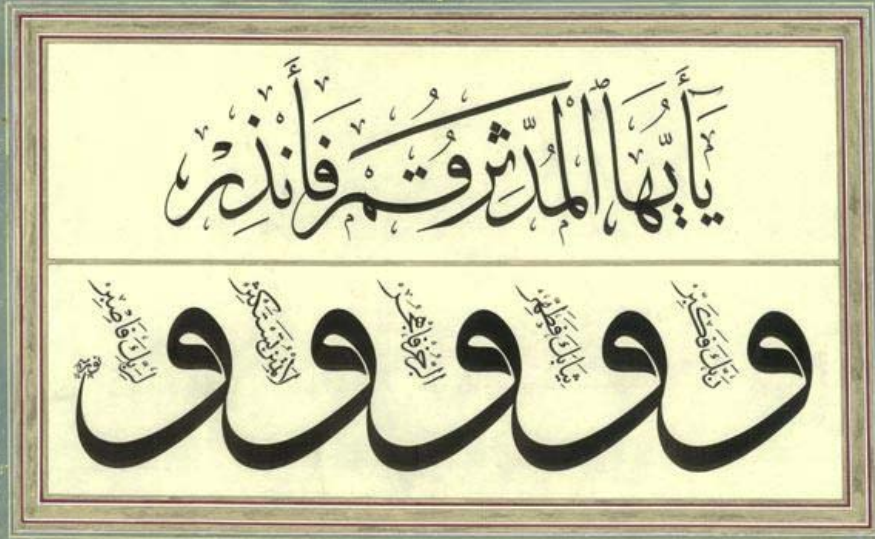 يَا أَيُّهَا الْمُدَّثِّرُ قُمْ فَأَنْذِرْ
و رَبَّكَ فَكَبِّرْ و ثِيَابَكَ فَطَهِّرْ و الرُّجْزَ فَاهْجُرْ و لَا تَمْنُنْ تَسْتَكْثِرُ و لِرَبِّكَ فَاصْبِرْ